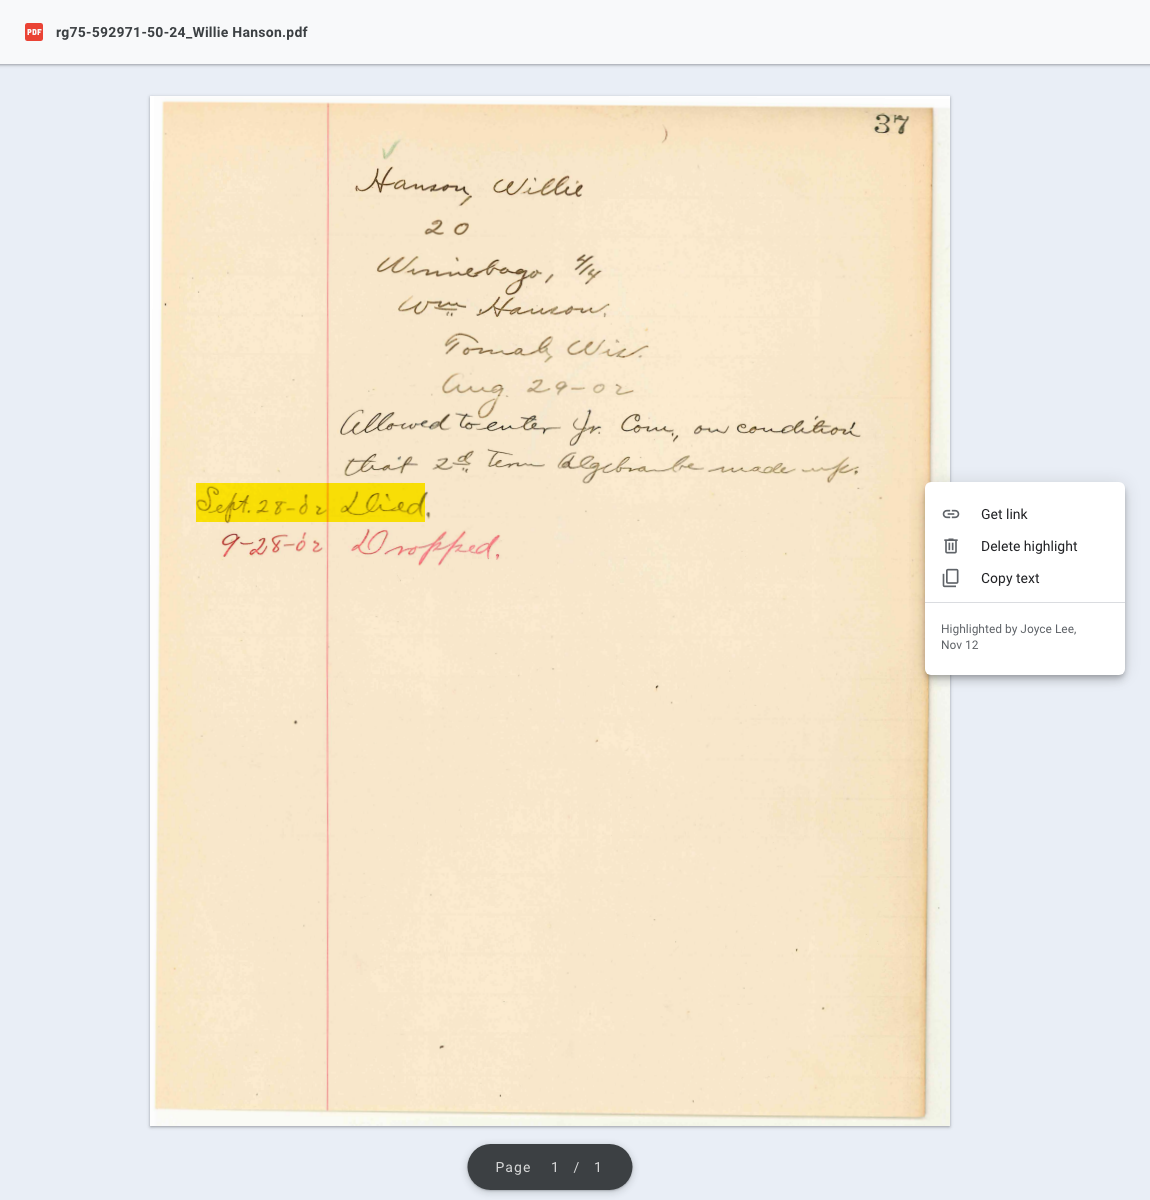 PDF rg75-592971-50-24_Willie Hanson.pdf
37
Hanson, Willie
20
Winnebago, 4/4
Wm Hanson.
Tomah, Wis.
Aug. 29-02
Allowed to enter Jr. Com., on condition
that 2d Term Algebra be made up.
Sept. 28-02 Died.
9-28-02 Dropped.
Get link
Delete highlight
Copy text
Highlighted by Joyce Lee,
Nov 12
Page 1 / 1